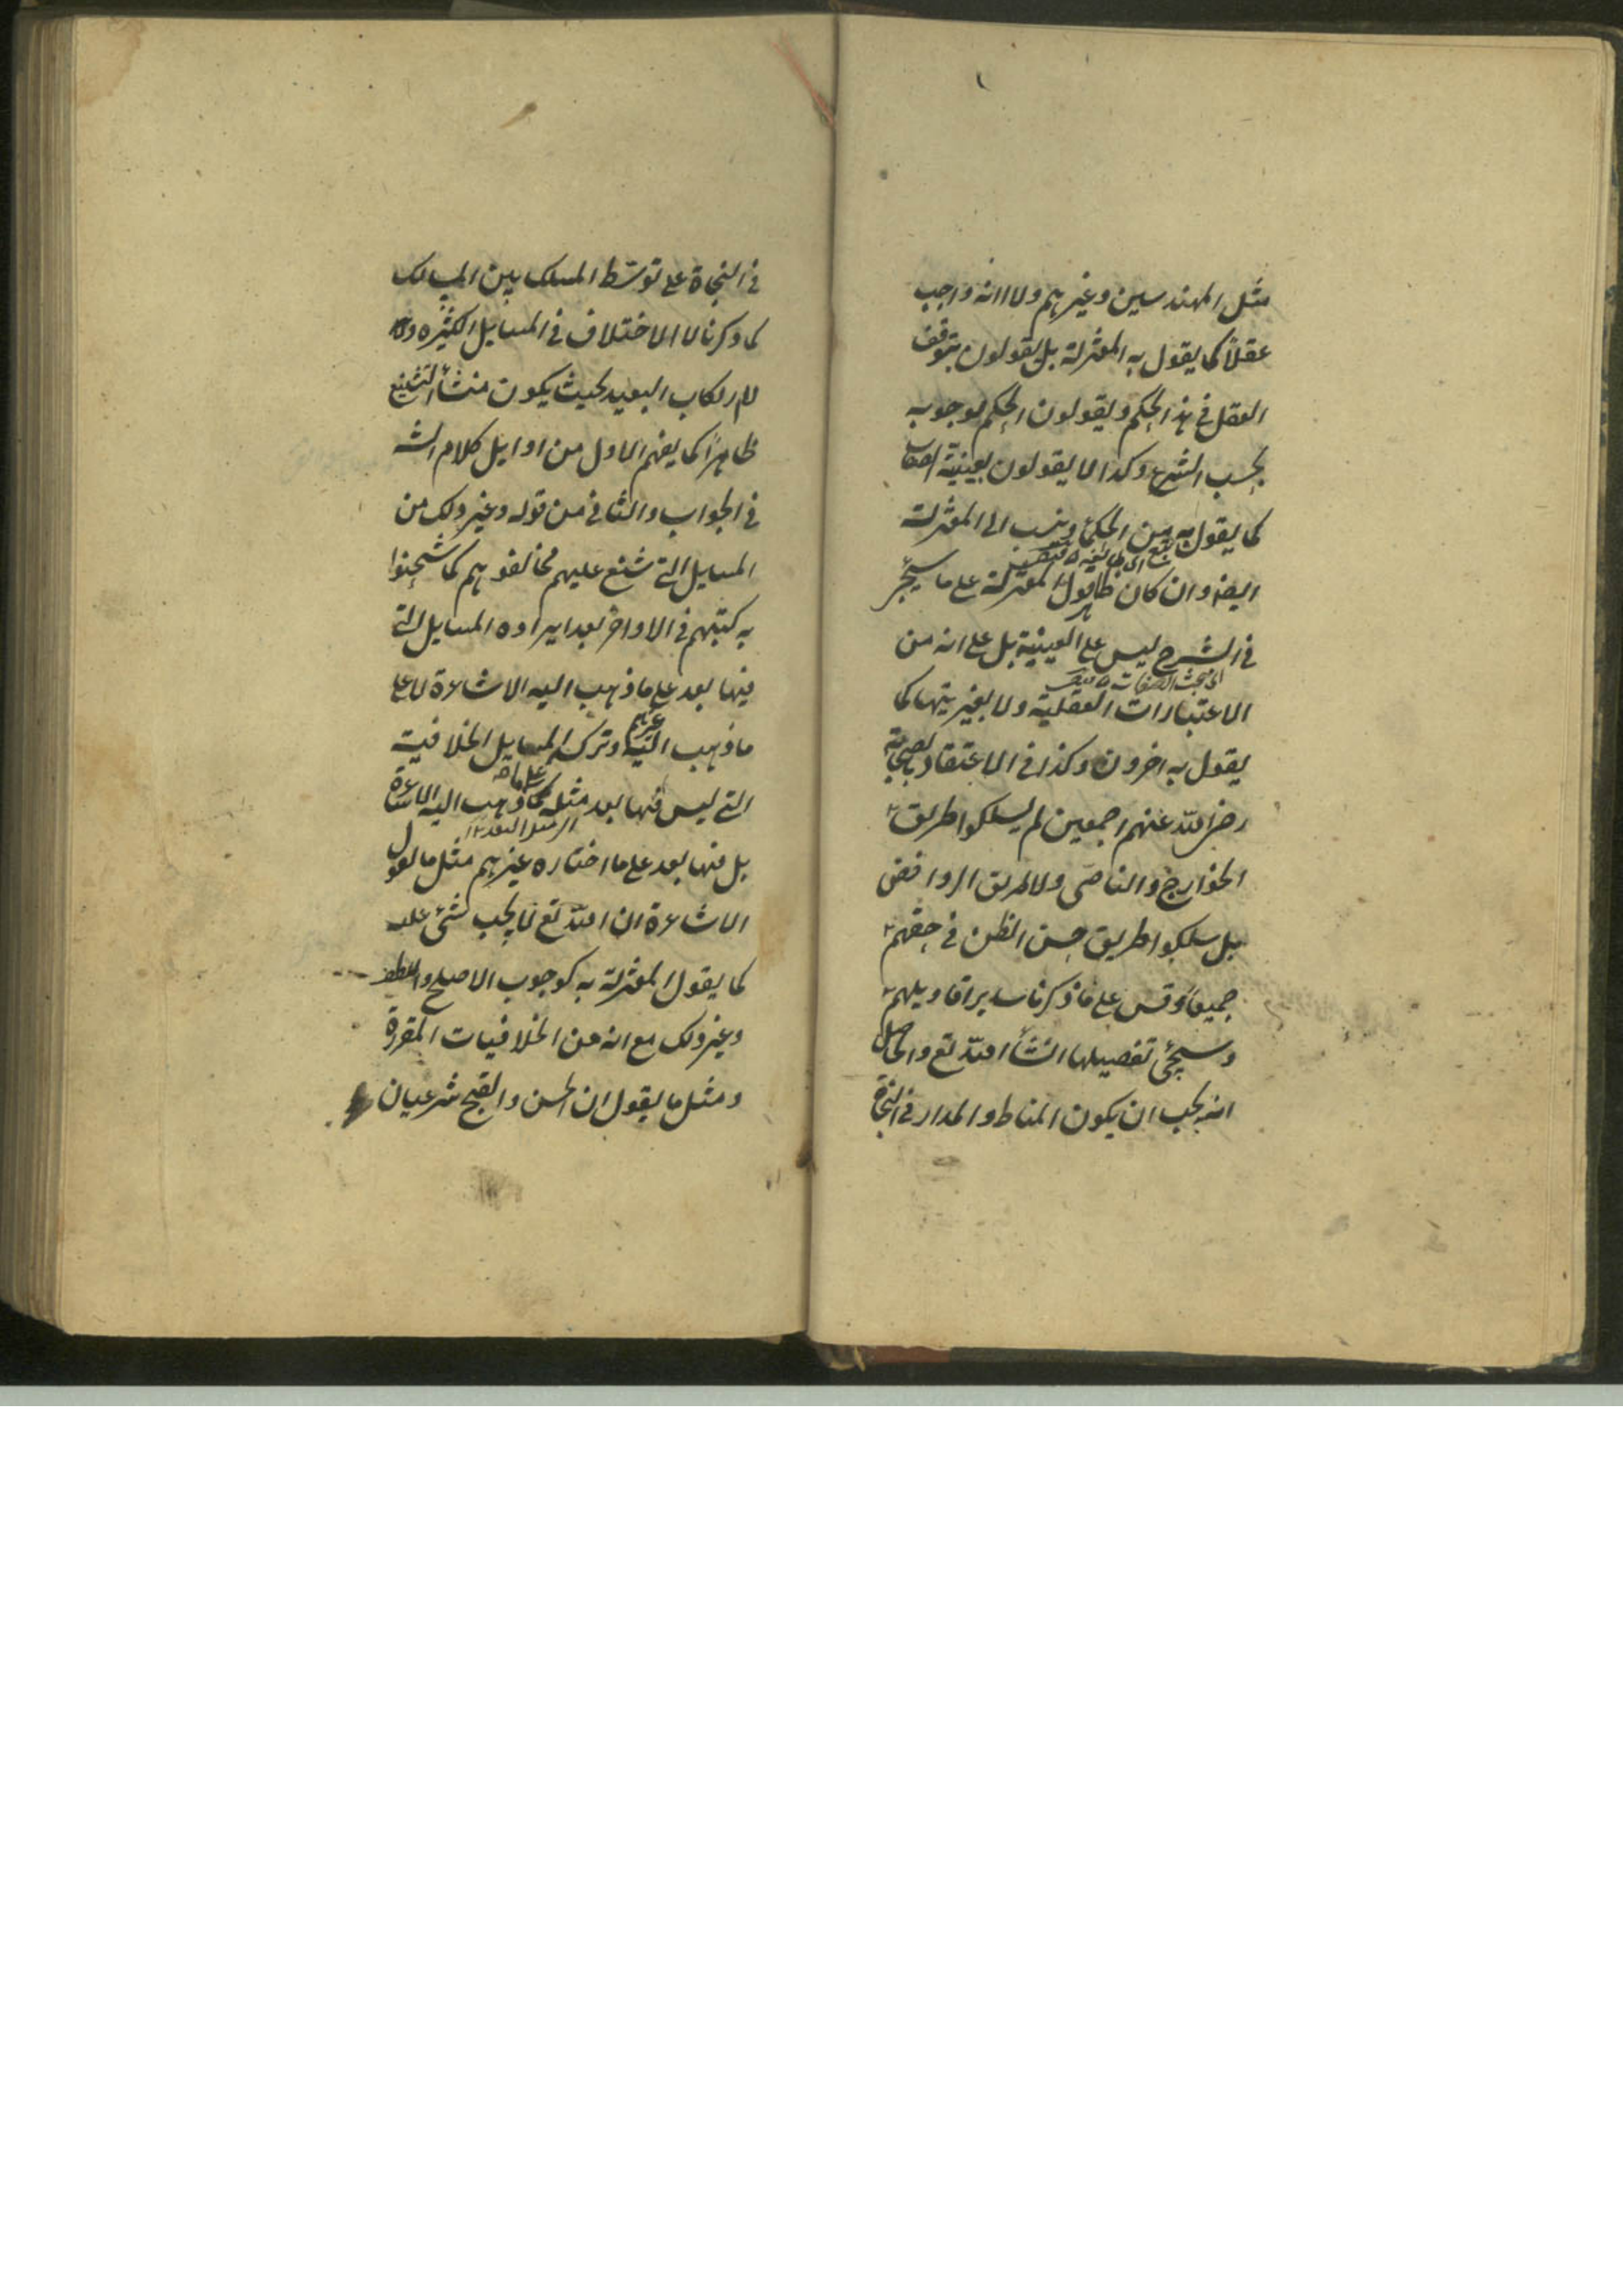 مثل المهندسين وغيرهم ولا انه واجب
عقلاً كما يقول به المعتزلة بل يقولون بتوقف
العقل في هذا الحكم ويقولون الحكم بوجوبه
بحسب الشرع وكذا لا يقولون بعينية الصفات
كما يقول به من الحكماء وينسب الى المعتزلة
ايضا وان كان ظاهر قول المعتزلة على ما سيجئ
في الشرح ليس على العينية بل على انه من
الى بحث الصفات
الاعتبارات العقلية ولا بغيريتها كما
يقول به اخرون وكذا في الاعتقاد بالصحابة
رضى الله عنهم اجمعين لم يسلكوا طريق
الخوارج والناصى ولا طريق الروافض
بل سلكوا طريق حسن الظن في حقهم
جميعاً وقس على ما ذكرنا ساير اقاويلهم
وسيجئ تفصيلها انشأ الله تع والحاصل
انه يجب ان يكون المناط والمدار في النجاة
في النجاة على توسّط المسلك بين المسالك
كما ذكرنا لا الاختلاف في المسايل الكثيره ولا
لارتكاب البعيد بحيث يكون منشأ التشنيع
ظاهراً كما يفهم الاول من اوايل كلام الشه
في الجواب والثاني من قوله وغير ذلك من
المسايل التي شنع عليهم مخالفوهم كما شحنوا
به كتبهم في الاواخر بعد ايراده المسايل التي
فيها بعد على ما ذهب اليه الاشاعرة لا على
ما ذهب اليه غيرهم وترك المسايل الخلافية
التي ليس فيها بعد مثله على ما ذهب اليه الاشاعرة
بل فيها بعد على ما اختاره غيرهم مثل ما يقول
الاشاعرة ان الله تع لا يجب شئ عليه
كما يقول المعتزلة به كوجوب الاصلح واللطف
وغير ذلك مع انه من الخلافيات المقررة
ومثل ما يقول ان الحسن والقبح شرعيان